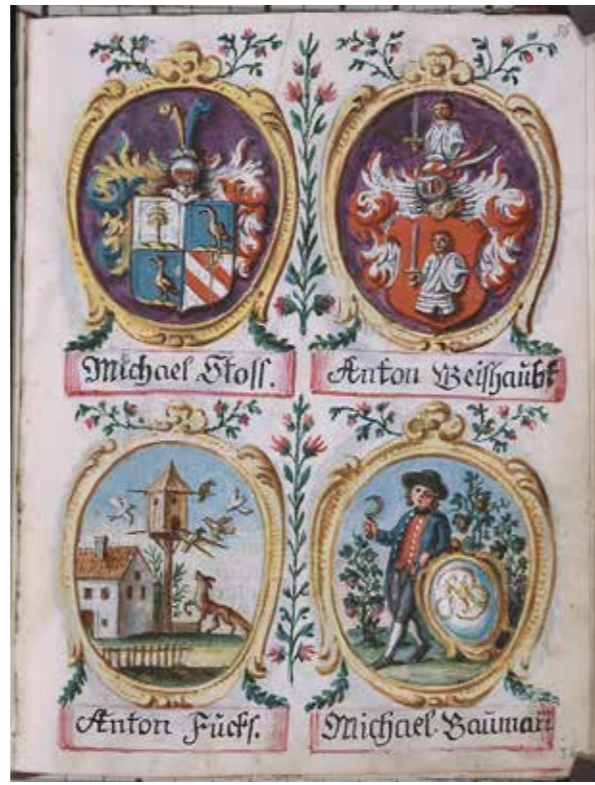 Michael Stoss.
Anton Weishaubt
Anton Fuchs.
Michael Bauman̄